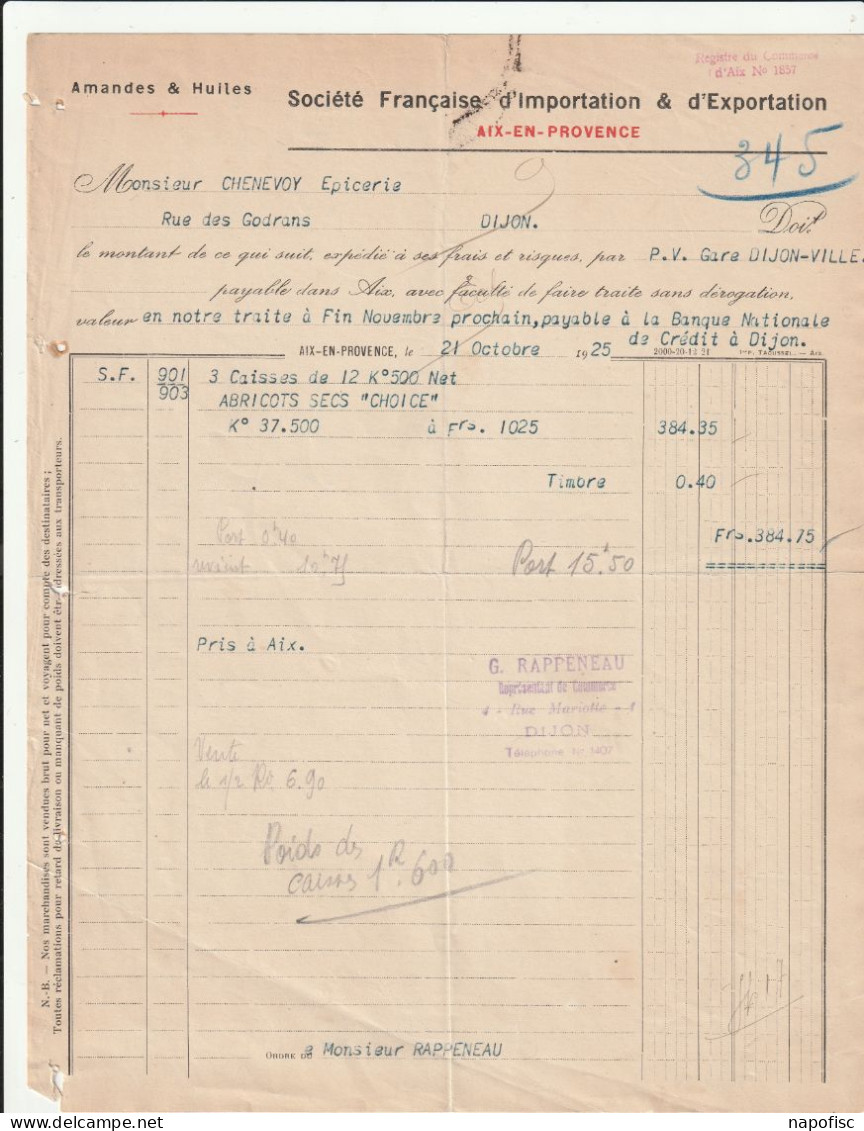 Registre du Commerce
d'Aix No 1857
Amandes & Huiles
Société Française d'Importation & d'Exportation
AIX-EN-PROVENCE
345
Monsieur CHENEVOY Epicerie
Rue des Godrans DIJON. Doit
le montant de ce qui suit, expédié à ses frais et risques, par P.V. Gare DIJON-VILLE.
payable dans Aix, avec faculté de faire traite sans dérogation,
valeur en notre traite à Fin Novembre prochain, payable à la Banque Nationale
de Crédit à Dijon.
AIX-EN-PROVENCE, le 21 Octobre 1925 2000-20-12 21
S.F. 901/903 3 Caisses de 12 K°500 Net
ABRICOTS SECS "CHOICE"
K° 37.500 à Frs. 1025 384.35
Timbre 0.40
Frs.384.75
Port 0f40
revient 10f75
Port 15f50
Pris à Aix.
G. RAPPENEAU
Représentant de Commerce
4 - Rue Mariotte - 4
DIJON
Téléphone Nr 1407
Vente
le 1/2 Ko 6.90
Poids des
caisses 1K.600
ORDRE DE Monsieur RAPPENEAU
N.-B. — Nos marchandises sont vendues brut pour net et voyagent pour compte des destinataires ;
Toutes réclamations pour retard de livraison ou manquant de poids doivent être adressées aux transporteurs.
napofisc